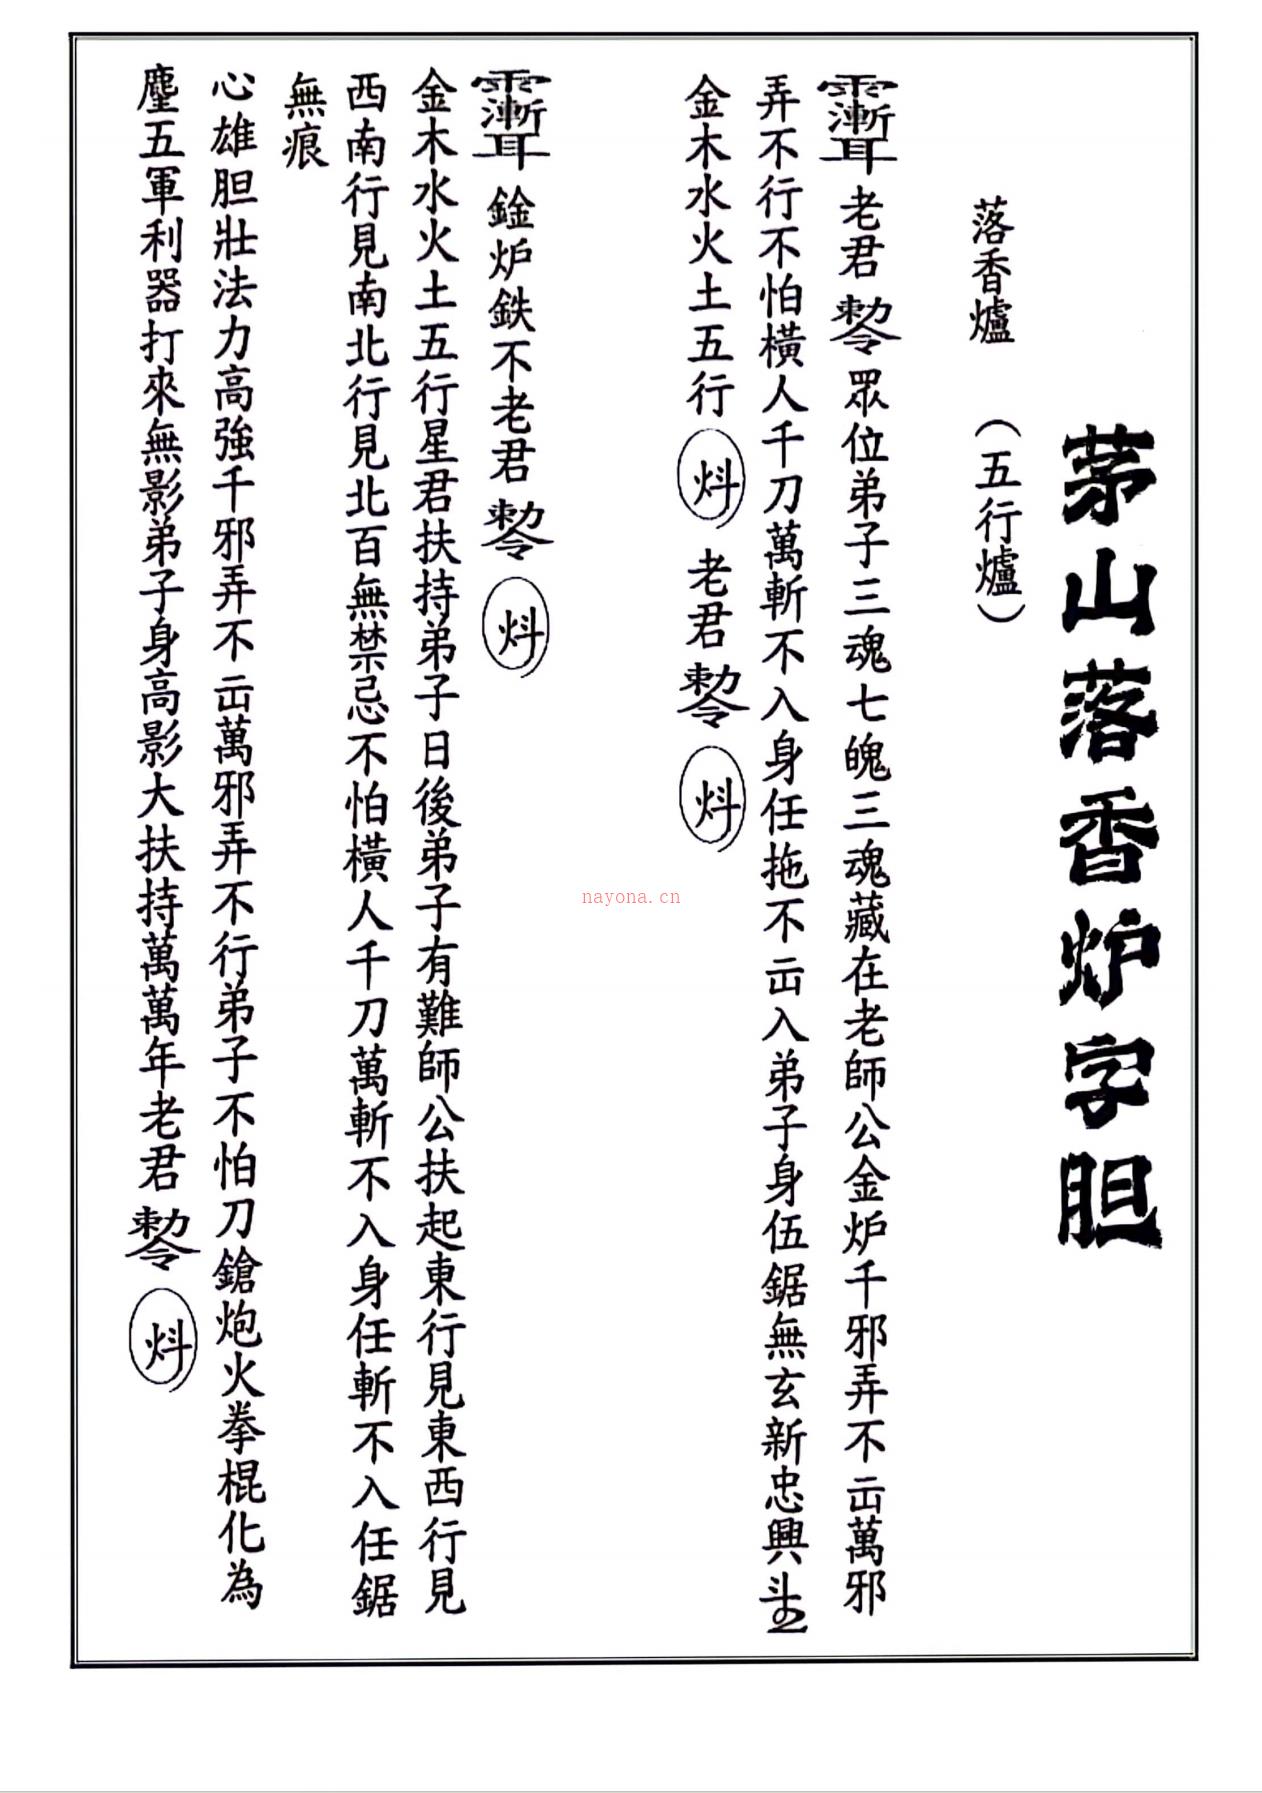 茅山落香炉字胆
落香爐 （五行爐）
老君勅令眾位弟子三魂七魄三魂藏在老師公金炉千邪弄不𠙖萬邪
弄不行不怕橫人千刀萬斬不入身任拖不𠙖入弟子身伍鋸無玄新忠興
金木水火土五行 炓 老君勅令 炓
錀炉鉄不老君勅令 炓
金木水火土五行星君扶持弟子日後弟子有難師公扶起東行見東西行見
西南行見南北行見北百無禁忌不怕橫人千刀萬斬不入身任斬不入任鋸
無痕
心雄胆壯法力高強千邪弄不𠙖萬邪弄不行弟子不怕刀鎗炮火拳棍化為
塵五軍利器打來無影弟子身高影大扶持萬萬年老君勅令 炓
nayona.cn